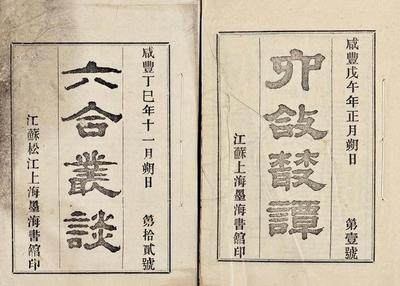 咸豐丁巳年十一月朔日 第拾貳號
六合叢談
江蘇松江上海墨海書館印
咸豐戊午年正月朔日 第壹號
六合叢譚
江蘇上海墨海書館印